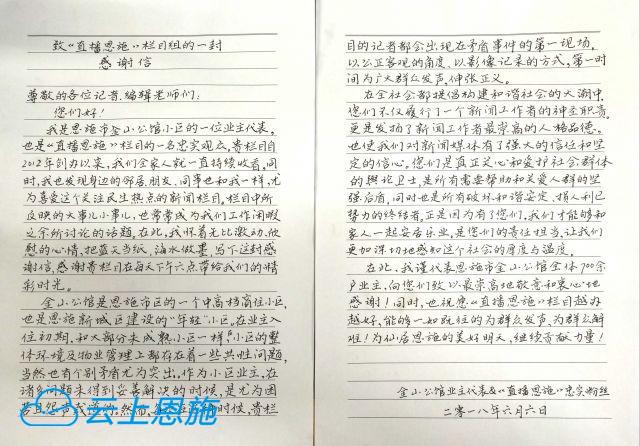 致"直播恩施"栏目组的一封
感谢信
尊敬的各位记者、编辑老师们:
您们好!
我是恩施市金山公馆小区的一位业主代表,
也是"直播恩施"栏目的一名忠实观众,贵栏目自
2012年创办以来,我们全家人就一直持续收看,同
时,我也发现身边的邻居、朋友、同事也和我一样,尤
为喜爱这个关注民生热点的新闻栏目,栏目中所
反映的大事儿小事儿,也常常成为我们工作闲暇
之余所讨论的话题,在此,我怀着无比激动、欣
慰的心情,把蓝天当纸,海水做墨,写下这封感
谢信,感谢贵栏目在每天下午六点带给我们的精
彩时光。
金山公馆是恩施市区的一个中高档商住小区,
也是恩施新城区建设的"年轻"小区。在业主入
住初期,和大部分未成熟小区一样,小区的整
体环境及物业管理上都存在着一些共性问题,
当然也有个别矛盾尤为突出,作为小区业主,在
诸多问题未得到妥善解决的时候,是尤为困
时候,贵栏
目的记者都会出现在矛盾事件的第一现场,
以公正客观的角度、以影像记录的方式,第一时
间为广大群众发声、伸张正义。
在全社会都提倡构建和谐社会的大潮中,
您们不仅履行了一个新闻工作者的神圣职责,
更是发扬了新闻工作者最崇高的人格品德,
也使我们对新闻媒体有了强大的信任和坚
定的信心,您们是真正关心和爱护社会群体
的舆论卫士,是所有需要帮助和关爱人群的坚
强后盾,同时也是所有破坏和谐安定、损人利己
势力的终结者,正是因为有了您们,我们才能够和
家人一起安居乐业,是您们的责任担当,让我们
更加深切地感知这个社会的厚度与温度。
在此,我谨代表恩施市金山公馆全体700余
户业主,向您们致以最崇高地敬意和衷心地
感谢!同时,也祝您"直播恩施"栏目越办
越好,能够一如既往的为群众发声、为群众解
难!为仙居恩施的美好明天,继续贡献力量!
金山公馆业主代表及"直播恩施"忠实粉丝
二零一八年六月六日
云上恩施